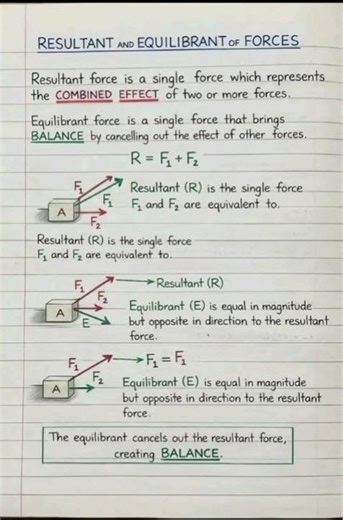 RESULTANT AND EQUILIBRANT OF FORCES
Resultant force is a single force which represents
the COMBINED EFFECT of two or more forces.
Equilibrant force is a single force that brings
BALANCE by cancelling out the effect of other forces.
R = F₁ + F₂
F₁
F₁
A
F₂
Resultant (R) is the single force
F₁ and F₂ are equivalent to.
Resultant (R) is the single force
F₁ and F₂ are equivalent to.
F₁
F₂
A
E
Resultant (R)
Equilibrant (E) is equal in magnitude
but opposite in direction to the resultant
force.
F₁
F₂
A
F₁ = F₁
Equilibrant (E) is equal in magnitude
but opposite in direction to the resultant
force.
The equilibrant cancels out the resultant force,
creating BALANCE.